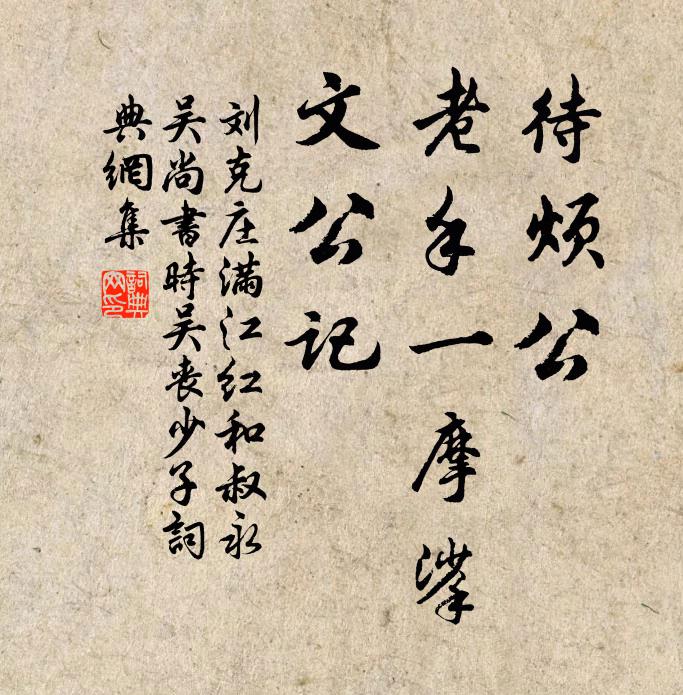 待烦公
老手一摩挲
文公记
刘克庄满江红和叔永
吴尚書時吴丧少子詞
典網集
詞典
网印